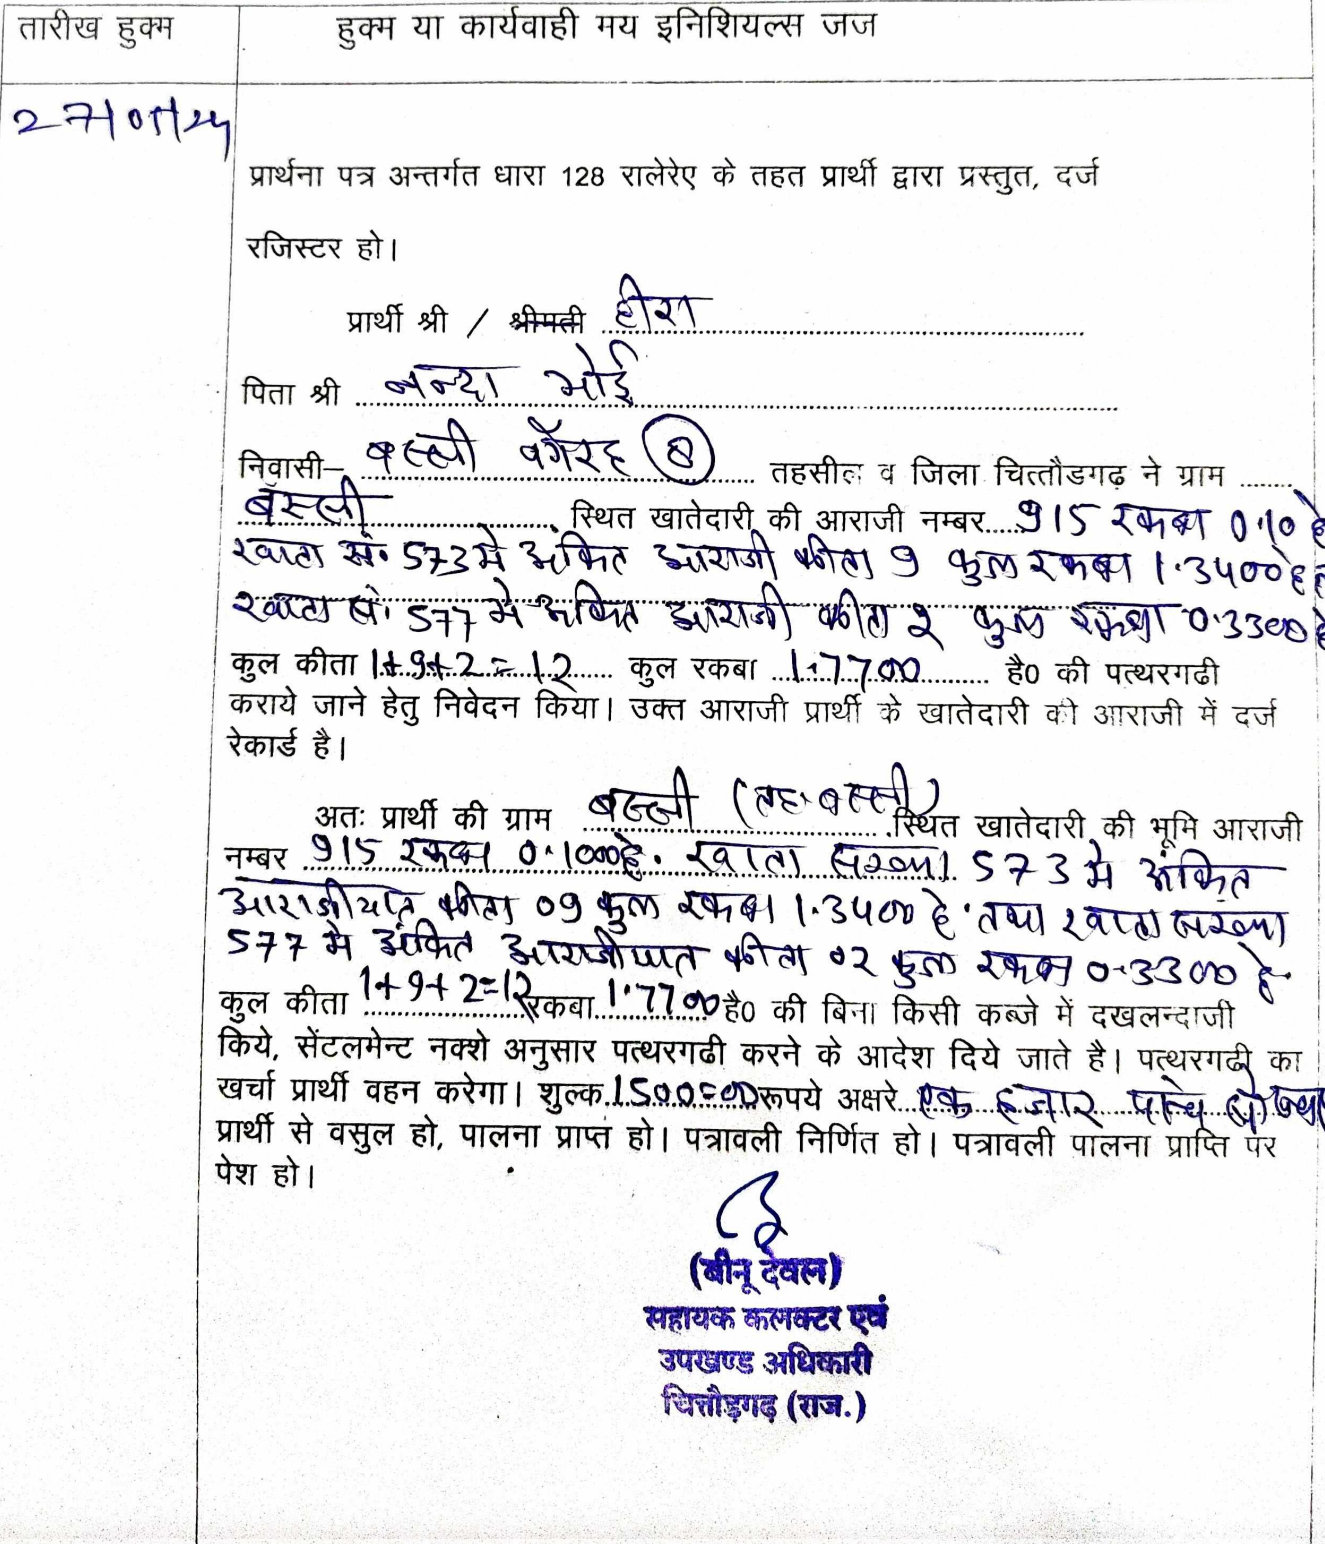 तारीख हुक्म
हुक्म या कार्यवाही मय इनिशियल्स जज
27/05/24
प्रार्थना पत्र अन्तर्गत धारा 128 रालेरेए के तहत प्रार्थी द्वारा प्रस्तुत, दर्ज
रजिस्टर हो।
प्रार्थी श्री / श्रीमती हीरा
पिता श्री नन्दा भोई
निवासी– बस्सी वगैरह (B) तहसील व जिला चित्तौडगढ़ ने ग्राम
बस्सी स्थित खातेदारी की आराजी नम्बर 915 रकबा 0.10 है
खाता सं. 573 मे अंकित आराजी कीता 9 कुल रकबा 1.3400 है
खाता सं. 577 मे अंकित आराजी कीता 2 कुल रकबा 0.3300 है
कुल कीता 1+9+2=12 कुल रकबा 1.7700 है0 की पत्थरगढी
कराये जाने हेतु निवेदन किया। उक्त आराजी प्रार्थी के खातेदारी की आराजी में दर्ज
रेकार्ड है।
अतः प्रार्थी की ग्राम बस्सी (तह. बस्सी) स्थित खातेदारी की भूमि आराजी
नम्बर 915 रकबा 0.1000 है. खाता संख्या 573 मे अंकित
आराजीयात कीता 09 कुल रकबा 1.3400 है. तथा खाता संख्या
577 मे अंकित आराजीयात कीता 02 कुल रकबा 0.3300 है.
कुल कीता 1+9+2=12 रकबा 1.7700 है0 की बिना किसी कब्जे में दखलन्दाजी
किये, सेंटलमेन्ट नक्शे अनुसार पत्थरगढी करने के आदेश दिये जाते है। पत्थरगढी का
खर्चा प्रार्थी वहन करेगा। शुल्क 1500=00 रूपये अक्षरे एक हजार पांच सौ रूपया
प्रार्थी से वसुल हो, पालना प्राप्त हो। पत्रावली निर्णित हो। पत्रावली पालना प्राप्ति पर
पेश हो।
(बीनू देवल)
सहायक कलक्टर एवं
उपखण्ड अधिकारी
चित्तौड़गढ़ (राज.)